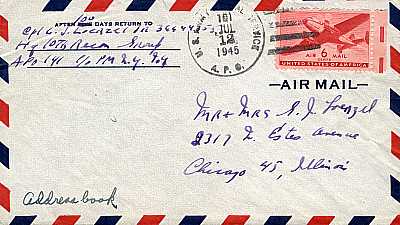 AFTER 10 DAYS RETURN TO
Cpl G. J. Loenzel
Hq 10th Recon Group
APO 141 c/o PM N.Y. N.Y.
U.S. ARMY POSTAL SERVICE
161
JUL
12
1945
A.P.O.
6
AIR MAIL
CENTS
UNITED STATES OF AMERICA
AIR MAIL
Mr + Mrs G. J. Loenzel
2317 N. Estes Avenue
Chicago 45, Illinois
Address book